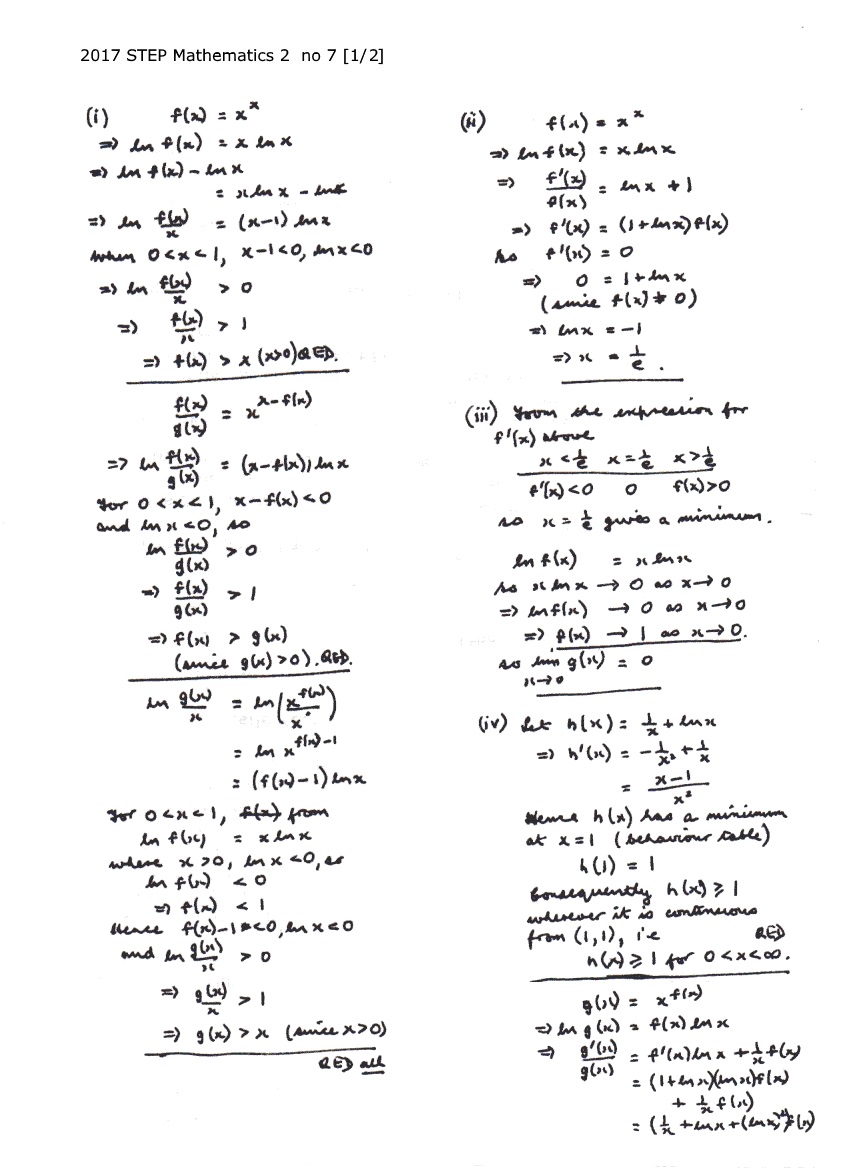 2017 STEP Mathematics 2 no 7 [1/2]
(i) f(x) = x^x
⇒ ln f(x) = x ln x
⇒ ln f(x) - ln x
= x ln x - ln x
⇒ ln f(x)/x = (x-1) ln x
when 0<x<1, x-1<0, ln x<0
⇒ ln f(x)/x > 0
⇒ f(x)/x > 1
⇒ f(x) > x (x>0) QED.
f(x)/g(x) = x^(x-f(x))
⇒ ln f(x)/g(x) = (x-f(x)) ln x
For 0<x<1, x-f(x)<0
and ln x<0, so
ln f(x)/g(x) > 0
⇒ f(x)/g(x) > 1
⇒ f(x) > g(x)
(since g(x)>0). QED.
ln g(x)/x = ln(x^f(x)/x)
= ln x^(f(x)-1)
= (f(x)-1) ln x
For 0<x<1, f(x) from
ln f(x) = x ln x
where x>0, ln x<0, so
ln f(x) < 0
⇒ f(x) < 1
Hence f(x)-1<0, ln x<0
and ln g(x)/x > 0
⇒ g(x)/x > 1
⇒ g(x) > x (since x>0)
QED all
(ii) f(x) = x^x
⇒ ln f(x) = x ln x
⇒ f'(x)/f(x) = ln x + 1
⇒ f'(x) = (1+ln x) f(x)
So f'(x) = 0
⇒ 0 = 1+ln x
(since f(x) ≠ 0)
⇒ ln x = -1
⇒ x = 1/e.
(iii) From the expression for
f'(x) above
x<1/e x=1/e x>1/e
f'(x)<0 0 f(x)>0
so x = 1/e gives a minimum.
ln f(x) = x ln x
so x ln x → 0 as x→0
⇒ ln f(x) → 0 as x→0
⇒ f(x) → 1 as x→0.
so lim x→0 g(x) = 0
(iv) Let h(x) = 1/x + ln x
⇒ h'(x) = -1/x² + 1/x
= (x-1)/x²
Hence h(x) has a minimum
at x=1 (behaviour table)
h(1) = 1
Consequently h(x) ≥ 1
wherever it is continuous
from (1,1), i.e QED
h(x) ≥ 1 for 0<x<∞.
g(x) = x^f(x)
⇒ ln g(x) = f(x) ln x
⇒ g'(x)/g(x) = f'(x) ln x + 1/x f(x)
= (1+ln x)(ln x) f(x)
+ 1/x f(x)
= (1/x + ln x + (ln x)²) f(x)